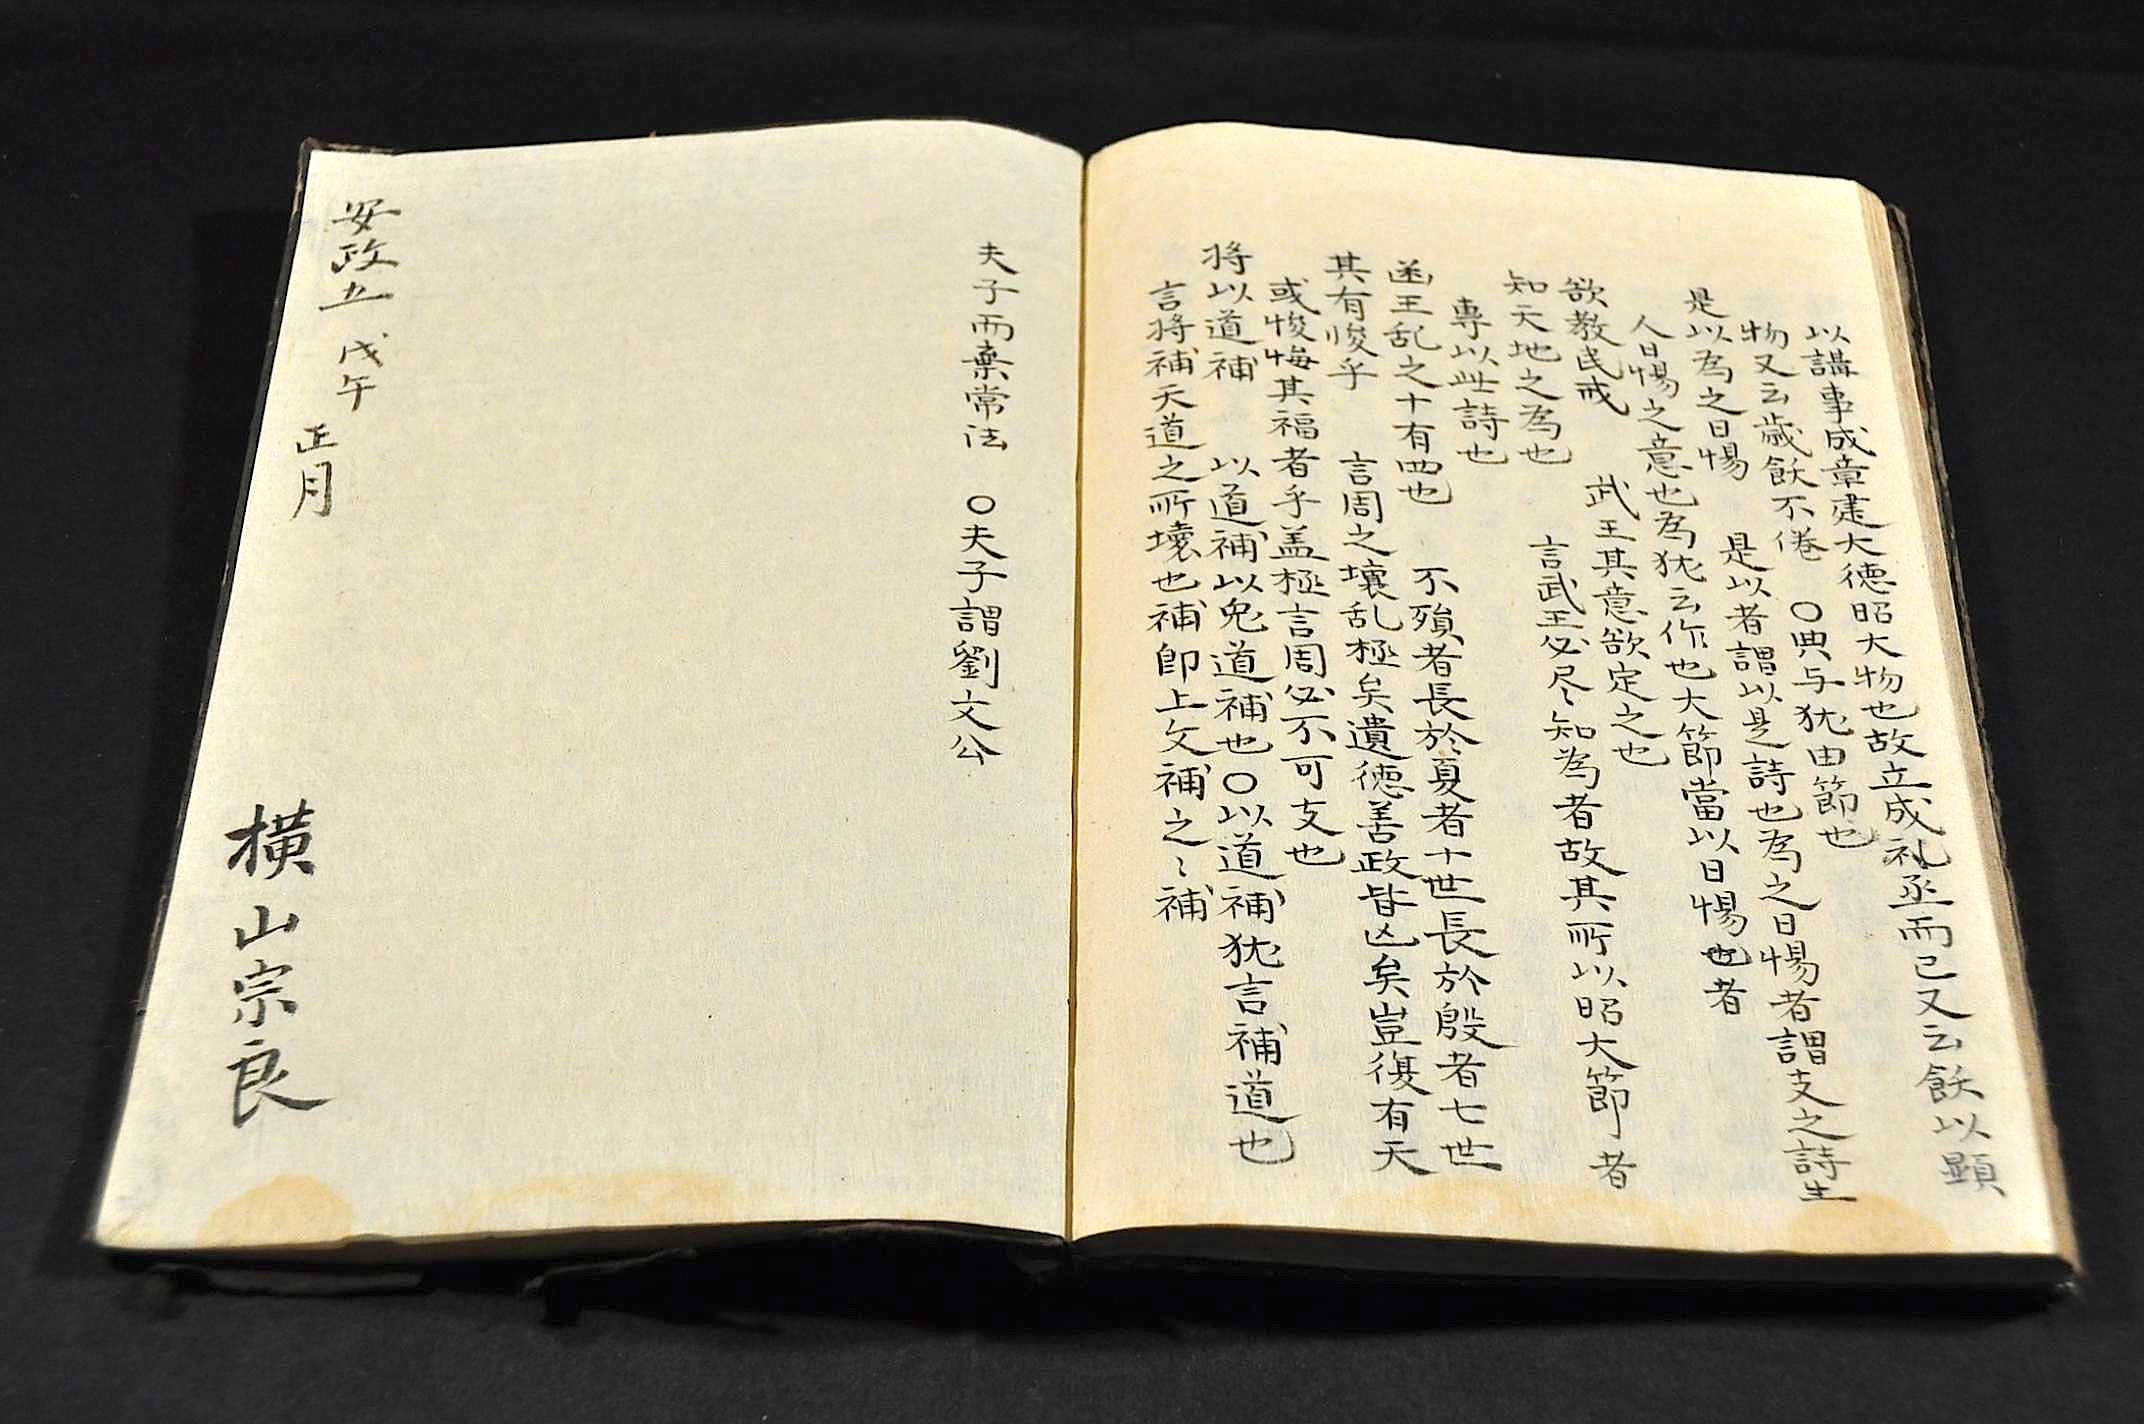 以講事成章建大徳昭大物也故立成礼烝而已又云飫以顕
物又云歳飫不倦　〇典与犹由節也
是以為之日惕　是以者謂以是詩也為之日惕者謂支之詩生
人日惕之意也為犹云作也大節當以日惕也者
欲教民戒　武王其意欲定之也
知天地之為也　言武王必尽〻知為者故其所以昭大節者
専以此詩也
幽王乱之十有四也　不殞者長於夏者十世長於殷者七世
其有悛乎　言周之壊乱極矣遺徳善政皆亾矣豈復有天
或悛悔其福者乎盖極言周必不可支也
将以道補　以道補以兒道補也〇以道補犹言補道也
言将補天道之所壊也補即上文補之〻補
夫子而棄常法　〇夫子謂劉文公
安政五　戊午　正月
横山宗良